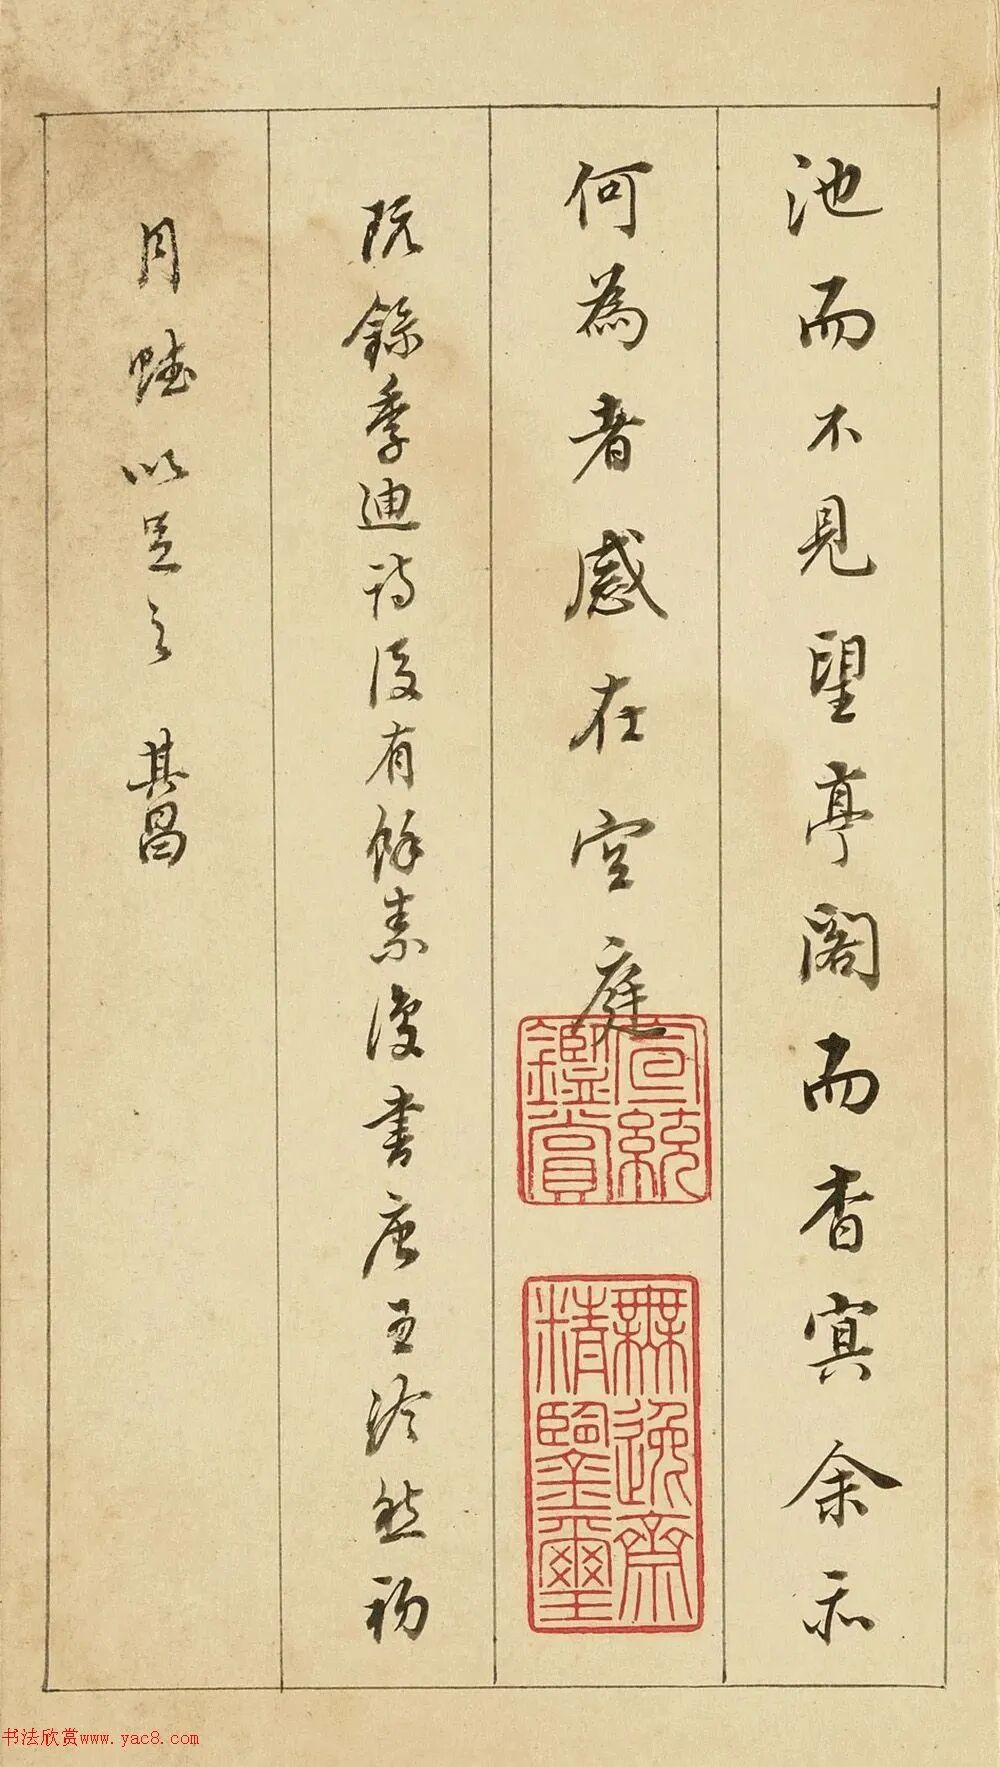 池而不見望亭閣而杳冥余亦
何為者感在空庭
既錄季迪詩後有餘素復書唐王泠然初
月賦以足之 其昌
宣統鑑賞
無逸齋精鑒璽
书法欣赏www.yac8.com